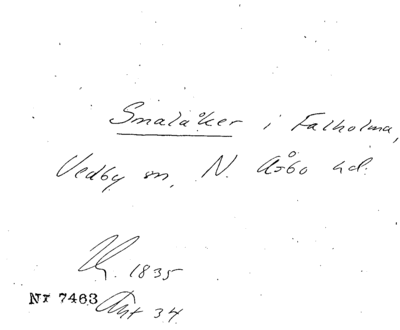 Smalåker i Falholma,
Vedby sn, N. Åsbo hd.
1835
Nr 7463 Akt 34